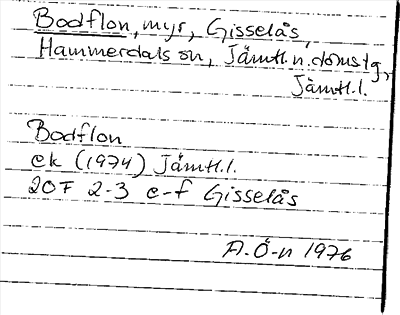 Bodflon, myr, Gisselås,
Hammerdals sn, Jämtl.n.domslg,
Jämtl.l.
Bodflon
ek (1974) Jämtl.l.
20F 2-3 e-f Gisselås
A.Ö-n 1976